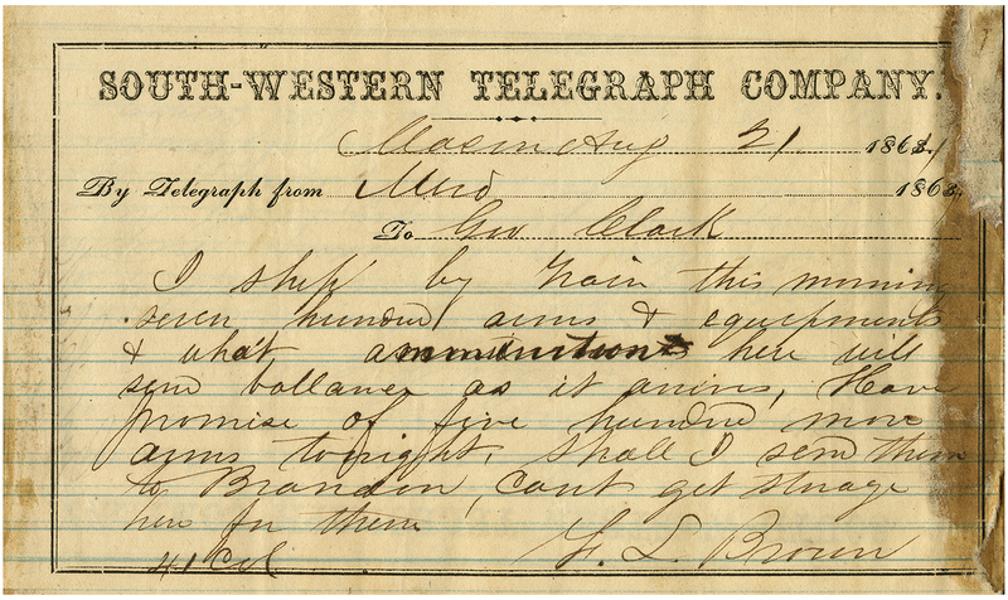 SOUTH-WESTERN TELEGRAPH COMPANY.
Macon Aug 21 186
By Telegraph from Mrd 186
To Gov Clark
I ship by train this morning
seven hundred arms & equipments
& what ammunition here will
send ballance as it arrives, Have
promise of five hundred more
arms tonight, shall I send them
to Brandon, cant get storage
here for them
41 Col J. L. Brown